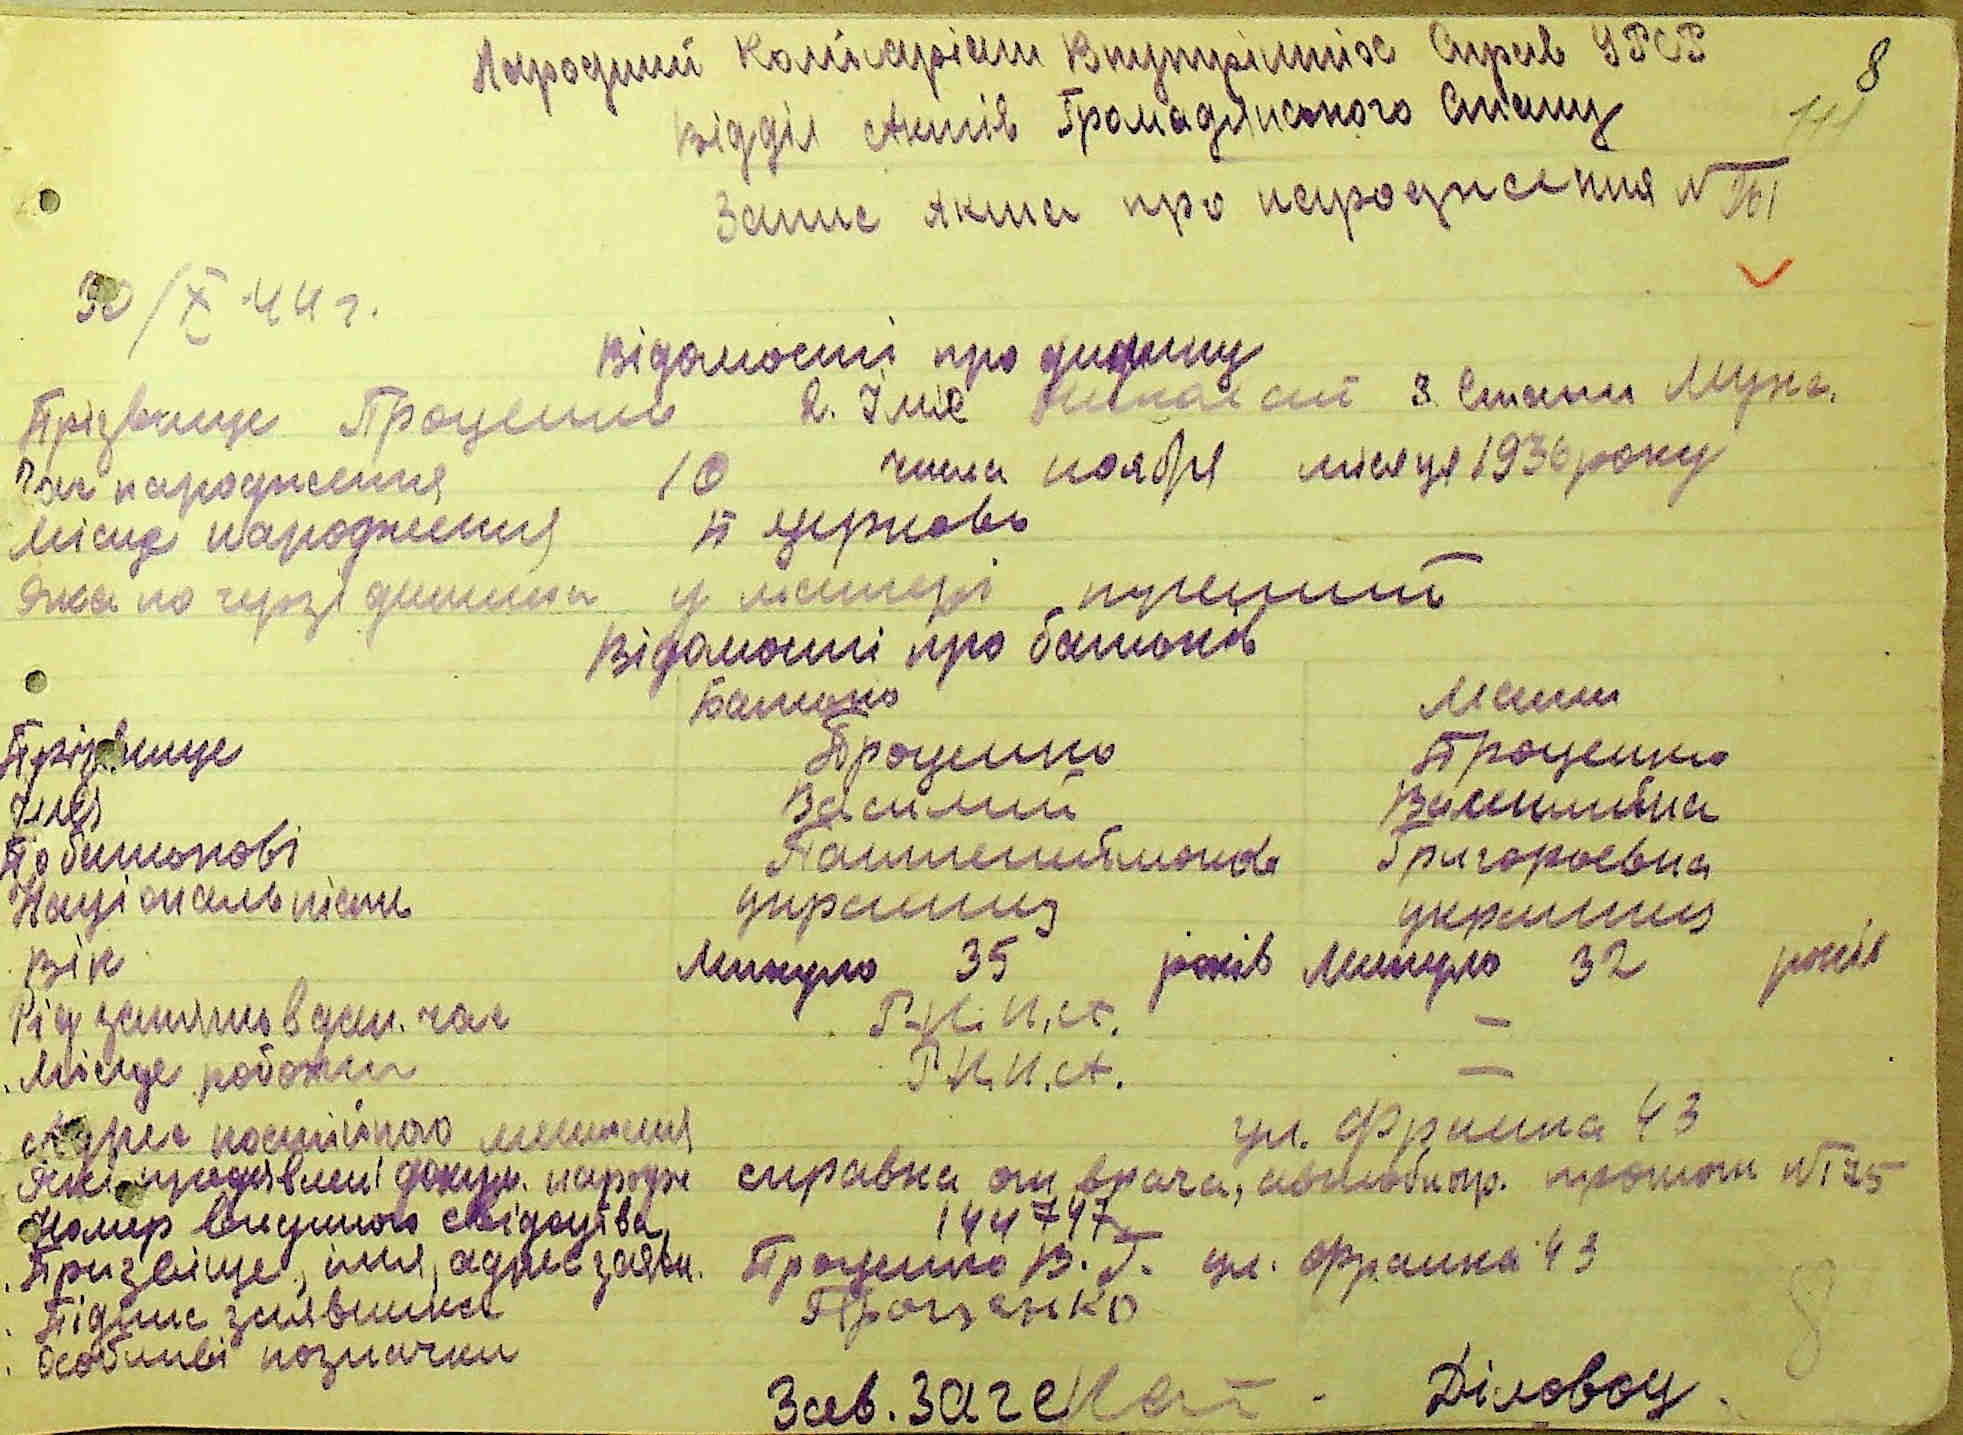 8
Народний Комісаріат Внутрішніх Справ УРСР
Відділ Актів Громадянського Стану
141
Запис Акта про народження №
30/X 44 г.
Відомості про дитину
Прізвище Проценко 2. Імя Николай 3. Стать Мужс.
Час народження 10 числа ноября місяця 1936 року
Місце народження
Яка по черзі дитина у матері третий
Відомості про батьків
Батько Мати
Прізвище Проценко Проценко
Імя Василий Валентина
По батькові Григорьевна
Національність украинец украинка
Вік Минуло 35 років Минуло 32 років
Рід занять в дан. час Р.К.К.А. —
Місце роботи Р.К.К.А. —
Адрес постійного мешкання ул. Франка 43
Які предявлені докум. народж справка от врача, автобиогр. № 125
Номер виданого свідоцтва 144747
Призвіще, імя, адрес заявн. Проценко В. Г. ул. Франка 43
Підпис заявника Проценко
Особливі позначки
8
Зав. ЗАГС Діловод